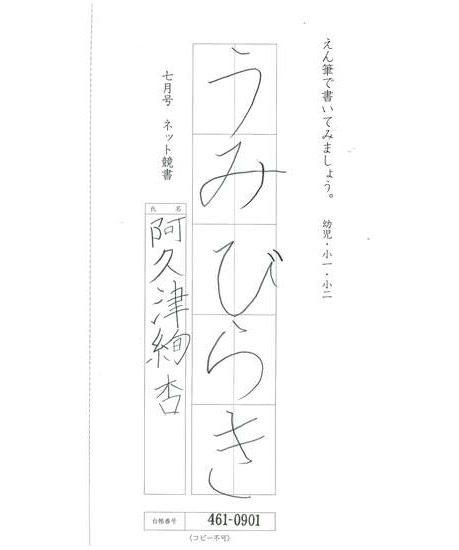 えん筆で書いてみましょう。 幼児・小一・小二
うみびらき
七月号 ネット競書
氏名
阿久津絢杏
台帳番号 461-0901
(コピー不可)